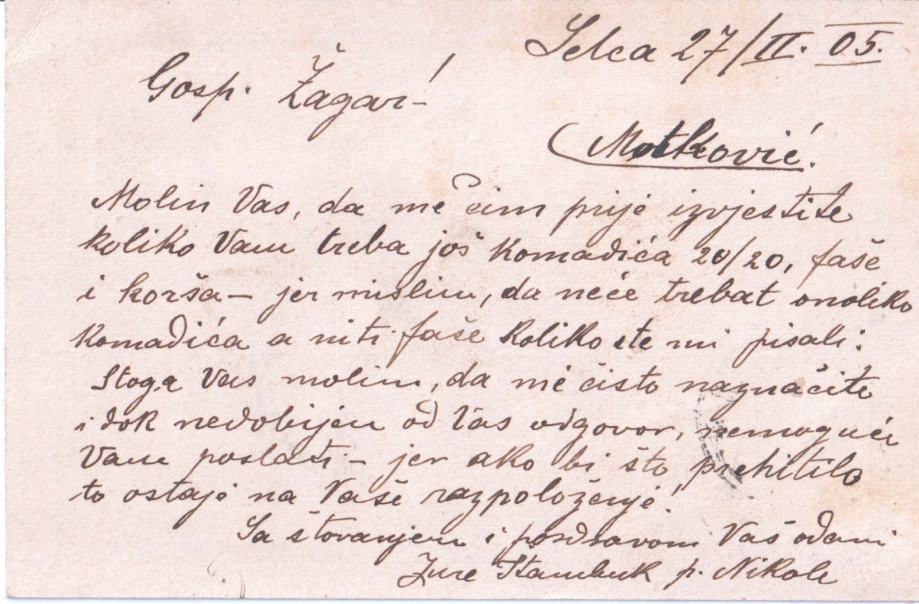 Selca 27/II. 05.
Gosp. Žagar-
Motković.
Molin Vas, da me čim prije izvjestite
koliko Vam treba još komadića 20/20, faše
i korša- jer mislim, da neće trebat onoliko
komadića a niti faše koliko ste mi pisali.
Stoga Vas molim, da me čisto naznačite
i dok nedobijem od Vas odgovor, nemoguću
Vam poslati- jer ako bi što prehitilo
to ostaje na Vaše razpoloženje!
Sa štovanjem i pozdravom Vaš odani
Jure Štambuk p. Nikole